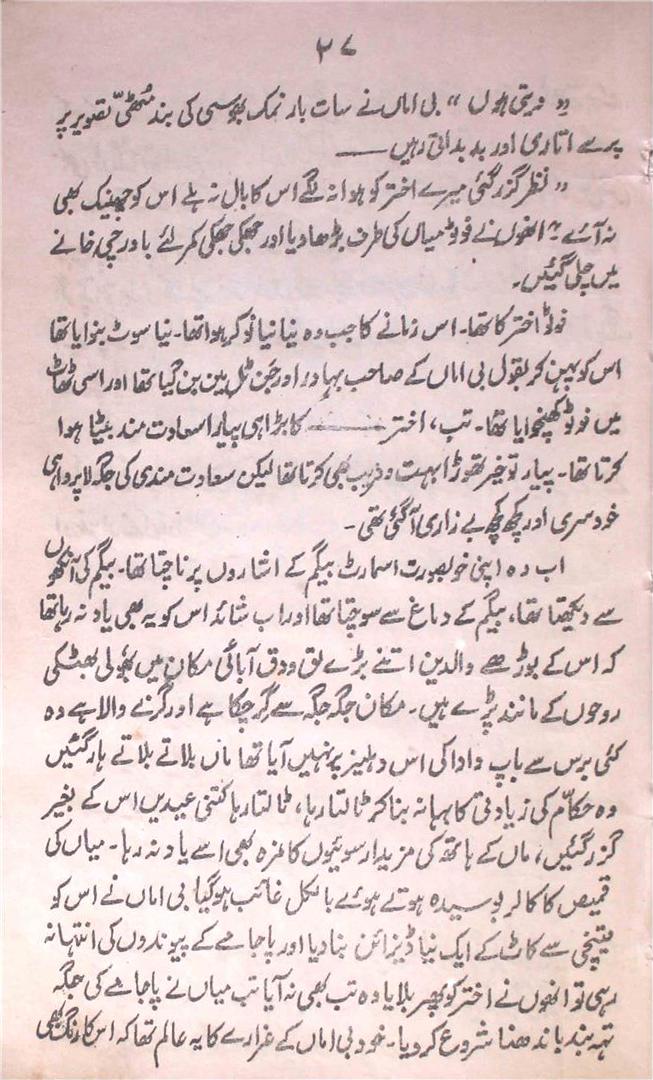 ۲۷
” دیتی ہوں “ بی اماں نے سات بار نمک بھوسی کی بند مُٹھی تصویر پر
پر سے اتاری اور بدبداتی رہیں ——
” نظر گزر گئی میرے اختر کو ہوا نہ لگے اس کا بال نہ ہلے اس کو چھینک بھی
نہ آئے “ انھوں نے فوٹو میاں کی طرف بڑھا دیا اور جھکی جھکی کمر لئے باورچی خانے
میں چلی گئیں۔
فوٹو اختر کا تھا۔ اس زمانے کا جب وہ نیا نیا نوکر ہوا تھا۔ نیا سوٹ بنوایا تھا
اس کو پہن کر بقول بی اماں کے صاحب بہادر اور جَن ٹل مین بن گیا تھا اور اسی ٹھاٹ
میں فوٹو کھنچوایا تھا۔ تب، اختر —— کا بڑا ہی پیارا سعادت مند بیٹا ہوا
کرتا تھا۔ پیار تو خیر تھوڑا بہت وہ اب بھی کرتا تھا لیکن سعادت مندی کی جگہ لاپرواہی
خودسری اور کچھ کچھ بے زاری آگئی تھی۔
اب وہ اپنی خوبصورت اسمارٹ بیگم کے اشاروں پر ناچتا تھا۔ بیگم کی آنکھوں
سے دیکھتا تھا، بیگم کے دماغ سے سوچتا تھا اور اب شائد اس کو یہ بھی یاد نہ رہا تھا
کہ اس کے بوڑھے والدین اتنے بڑے لق و دق آبائی مکان میں بھُولی بھٹکی
روحوں کے مانند پڑے ہیں۔ مکان جگہ جگہ سے گر چکا ہے اور گرنے والا ہے وہ
کئی برس سے باپ دادا کی اس دہلیز پر نہیں آیا تھا ماں بلاتے بلاتے ہار گئیں
وہ حکاّم کی زیادتی کا بہانہ بنا کر ٹالتا رہا، ٹالتا رہا کتنی عیدیں اس کے بغیر
گزر گئیں، ماں کے ہاتھ کی مزیدار سوئیوں کا مزہ بھی اسے یاد نہ رہا۔ میاں کی
قمیص کا کالر بوسیدہ ہوتے ہوئے بالکل غائب ہو گیا بی اماں نے اس کو
قینچی سے کاٹ کے ایک نیا ڈیزائن بنا دیا اور پاجامے کے پیوندوں کی انتہا نہ
رہی تو انھوں نے اختر کو پھر بلایا وہ تب بھی نہ آیا تب میاں نے پاجامے کی جگہ
تہہ بند باندھنا شروع کر دیا۔ خود بی اماں کے غرارے کا یہ عالم تھا کہ اس کا رنگ بھی